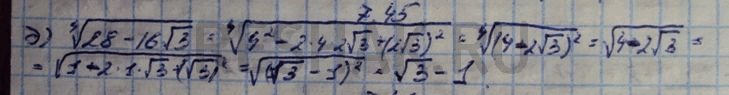 7.45
д) ∜28-16√3 = ∜4²-2·4·2√3+(2√3)² = ∜(4-2√3)² = √4-2√3 =
= √1-2·1·√3+(√3)² = √(√3-1)² = √3-1